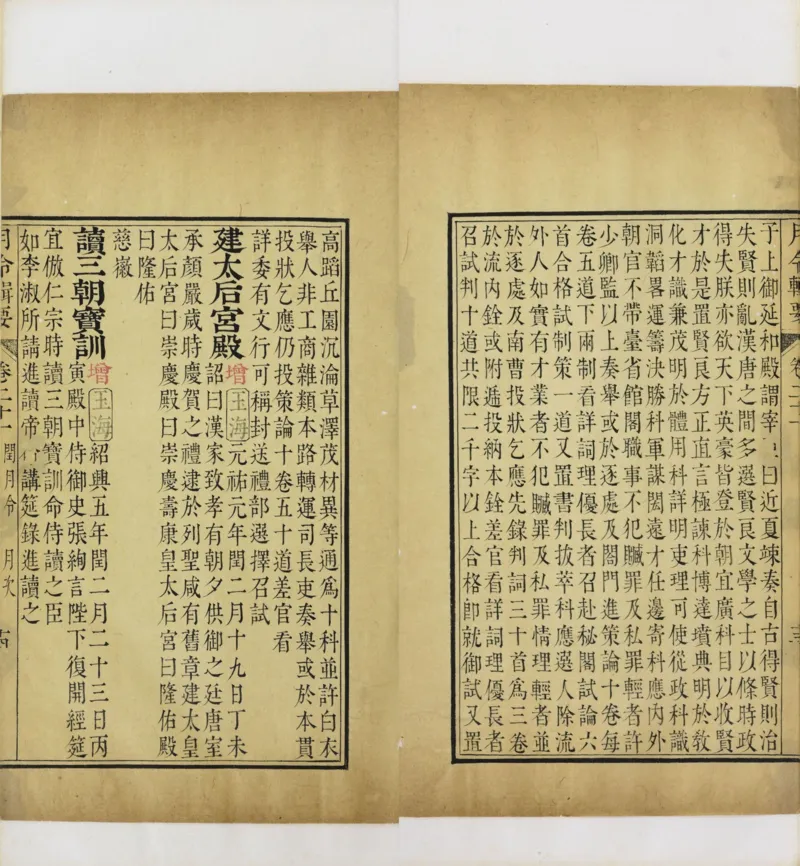 月令輯要
于上御延和殿謂宰曰近夏竦奏自古得賢則治
失賢則亂漢唐之間多選賢良文學之士以條時政
得失朕亦欲天下英豪皆登於朝宜廣科目以收賢
才於是置賢良方正直言極諫科博達墳典明於敎
化才識兼茂明於體用科詳明吏理可使從政科識
洞韜畧運籌決勝科軍謀閎遠才任邊寄科應內外
朝官不帶臺省館閣職事不犯贓罪及私罪輕者許
少卿監以上奏舉或於逐處及閤門進策論十卷每
卷五道下兩制看詳詞理優長者召赴秘閣試論六
首合格試制策一道又置書判拔萃科應選人除流
外人如實有才業者不犯贓罪及私罪情理輕者並
於逐處及南曹投狀乞應先錄判詞三十首爲三卷
於流內銓或附遞投納本銓差官看詳詞理優長者
召試判十道共限二千字以上合格卽就御試又置
高蹈丘園沉淪草澤茂材異等通爲十科並許白衣
舉人非工商雜類本路轉運司長吏奏舉或於本貫
投狀乞應仍投策論十卷五十道差官看
詳委有文行可稱封送禮部選擇召試
建太后宮殿增玉海元祐元年閏二月十九日丁未
詔曰漢家致孝有朝夕供御之廷唐室
承顏嚴歲時慶賀之禮逮於列聖咸有舊章建太皇
太后宮曰崇慶殿曰崇慶壽康皇太后宮曰隆佑殿
曰隆佑
慈徽
讀三朝寶訓增玉海紹興五年閏二月二十三日丙
寅殿中侍御史張絢言陛下復開經筵
宜倣仁宗時讀三朝寶訓命侍讀之臣
如李淑所請進讀帝行講筵錄進讀之
月令輯要 卷二十一 閏月令 月次